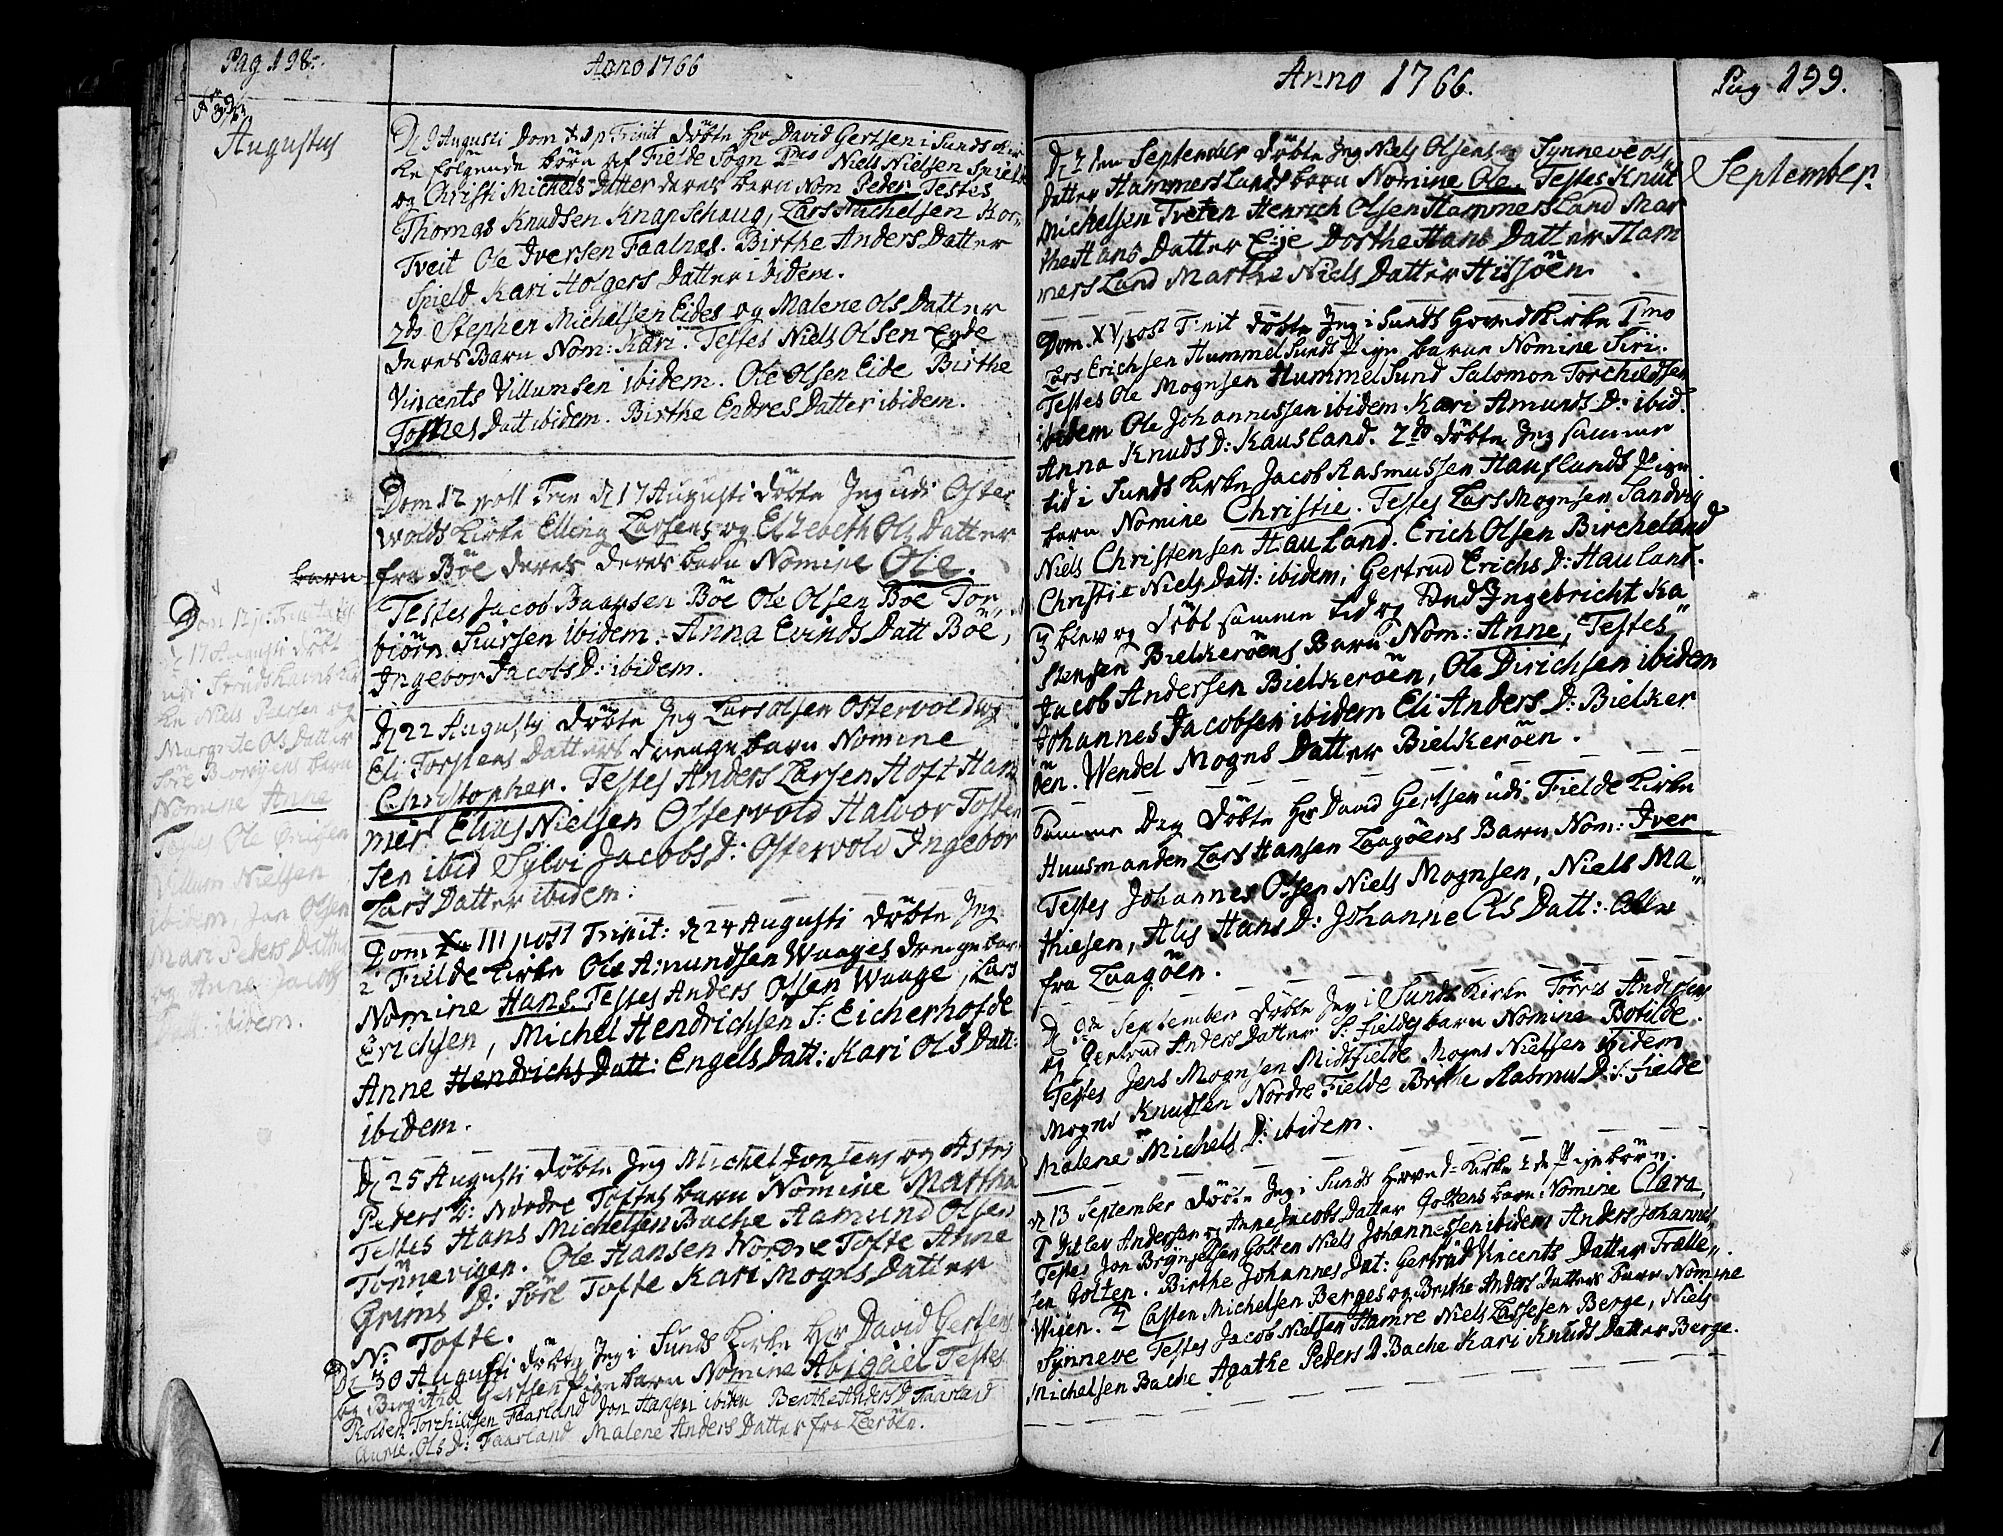 Pag 198.
Anno 1766
Augustus
D 9 Augusti Dom Trinit döbte Hr David Gertsen i Sunds
ke følgende börn af Fielde Sogn Imo Niels Nielsen Spield
og Christi Michels Datter deres barn Nom Peder Testes
Thomas Knudsen Knapschaug, Lars Michelsen Hor
Tveit Ole Iversen Faalnes. Birthe Anders Datter
Spield Kari Holgers Datter ibidem.
2do Stephen Michelsen Eides og Malene Ols Datter
deres Barn Nom: Kari. Testes Niels Olsen Eyde
Vincents Villumsen ibidem. Ole Olsen Eide Birthe
Tostes Datt ibidem. Birthe Endres Datter ibidem.
Dom 12 post Trin d 17 Augusti döbte Jeg udi Oster
volds Kirke Elling Larsens og Elsebeth Ols Datter
fra Böe deres deres barn Nomine Ole.
Testes Jacob Baarsen Böe Ole Olsen Böe Tor
biörn Siursen ibidem. Anna Evinds Datt Böe,
Ingebor Jacobs D: ibidem.
barn
Dom 12 p: Trinitatis
d 17 Augusti döbt
udi Sunds
ke Niels Peersen og
Margrete Ols Datter
barn
Nomine Anne
Testes Ole
Villum Nielsen
ibidem, Jon Olsen
Mari Peders Datter
og Anne Jacobs
Datt: ibidem.
D 22 Augusty döbte Jeg Lars Olsen Ostervold og
Eli Torstens Datters drenge barn Nomine
Christopher. Testes Anders Larsen Hoft Ham
mer Elius Nielsen Ostervold Halvor Tosten
sen ibid Sylvi Jacobs D: Ostervold Ingebor
Lars Datter ibidem.
Dom III post Trinit: d 24 Augusti döbte Jeg
i Fielde Kirke Ole Amundsen Waages drenge barn
Nomine Hans Testes Anders Olsen Waage, Lars
Erichsen, Michel Hendrichsen S: Eicherhofde
Anne Hendrichs Datt: Engels Datt: Kari Ols Datt:
ibidem.
D 25 Augusti döbte Jeg Michel Jonsens og Astri
Peders D: Nordre Toftes barn Nomine Martha
Testes Hans Michelsen Bache Aamund Olsen
Tönnevigen. Ole Hansen Nordre Tofte Anne
Grims D: Söre Tofte Kari Mogns Datter
N: Tofte.
D 30 Augusti döbte Jeg i Sunds Kirke Hr David Gertsens
og Bergitha Gertsen Pige barn Nomine Abigäel Testes
Torchildsen Faarland Jon Hansen ibidem Benthe Anders D Faarland
Ols D: Faarland Malene Anders Datter fra Leeröen.
Anno 1766.
Pag 199.
September.
D 7 hen September döbte Jeg Niels Olsens og Synneve Ols
Datter Hammerslands barn Nomine Ole. Testes Knut
Michelsen Tveten Henrich Olsen Hammersland Mar
the Hans Datter Eije Dorthe Hans Datter Ham
mersland Marthe Niels Datter Hissöen.
Dom. XV post Trinit döbte Jeg i Sunds Hoved Kirke Imo
Lars Erichsen Hummelsunds Pige barn Nomine Siri.
Testes Ole Mognsen Hummelsund Salomon Torchildsen
ibidem Ole Johannessen ibidem. Kari Amunds D: ibid.
Anna Knuds D: Kausland. 2do döbte Jeg samme
tid i Sunds Kirke Jacob Rasmussen Hauglands Pige
barn Nomine Christie. Testes Lars Mognsen Sandvig
Niels Christensen Hauland. Erich Olsen Bircheland
Christie Niels Datt: ibidem, Gertrud Erichs D: Hauland.
3 blev og döbt samme tid og Ingebricht Ka
stensen Bielkeröens Barn Nom: Anne, Testes
Jacob Andersen Bielkeröen, Ole Dirichsen ibidem
Johannes Jacobsen ibidem Eli Anders D: Bielker
öen. Wendel Mogns Datter Bielkeröen.
Samme Dag döbte Hr David Gertsen udi Fielde Kirke
Huusmanden Lars Hansen Laagöens Barn Nom: Iver
Testes Johannes Olsen Niels Mognsen, Niels Ma
thiesen, Alis Hans D: Johanne Ols Datt: Alle
fra Laagöen.
D 9de September döbte Jeg i Sunds Kirke Torris Andersens
og Gertrud Anders Datter S: Fieldes barn Nomine Botilde.
Testes Jens Mognsen Midtfielde Mogns Nielsen ibidem
Mogns Knudsen Nordre Fielde Brithe Rasmus D: S: Fielde
Malene Michels D: ibidem.
D 13 September döbte Jeg i Sunds Hoved Kirke 2de Pigebörn.
I Ditlev Andersen og Anne Jacobs Datter Goltens barn Nomine Clara,
Testes Jon Golten Niels Johannessen ibidem Anders Johannes
sen Golten. Birthe Johannes Dat: Gertrud Vincents Datter Trælle
Wigen. II Casten Michelsen Berges og Brithe Anders Datters barn Nomine
Synneve Testes Jacob Nielsen Hamre Niels Lassesen Berge, Niels
Michelsen Bache Agathe Peders D: Bache Kari Knuds Datter Berge.